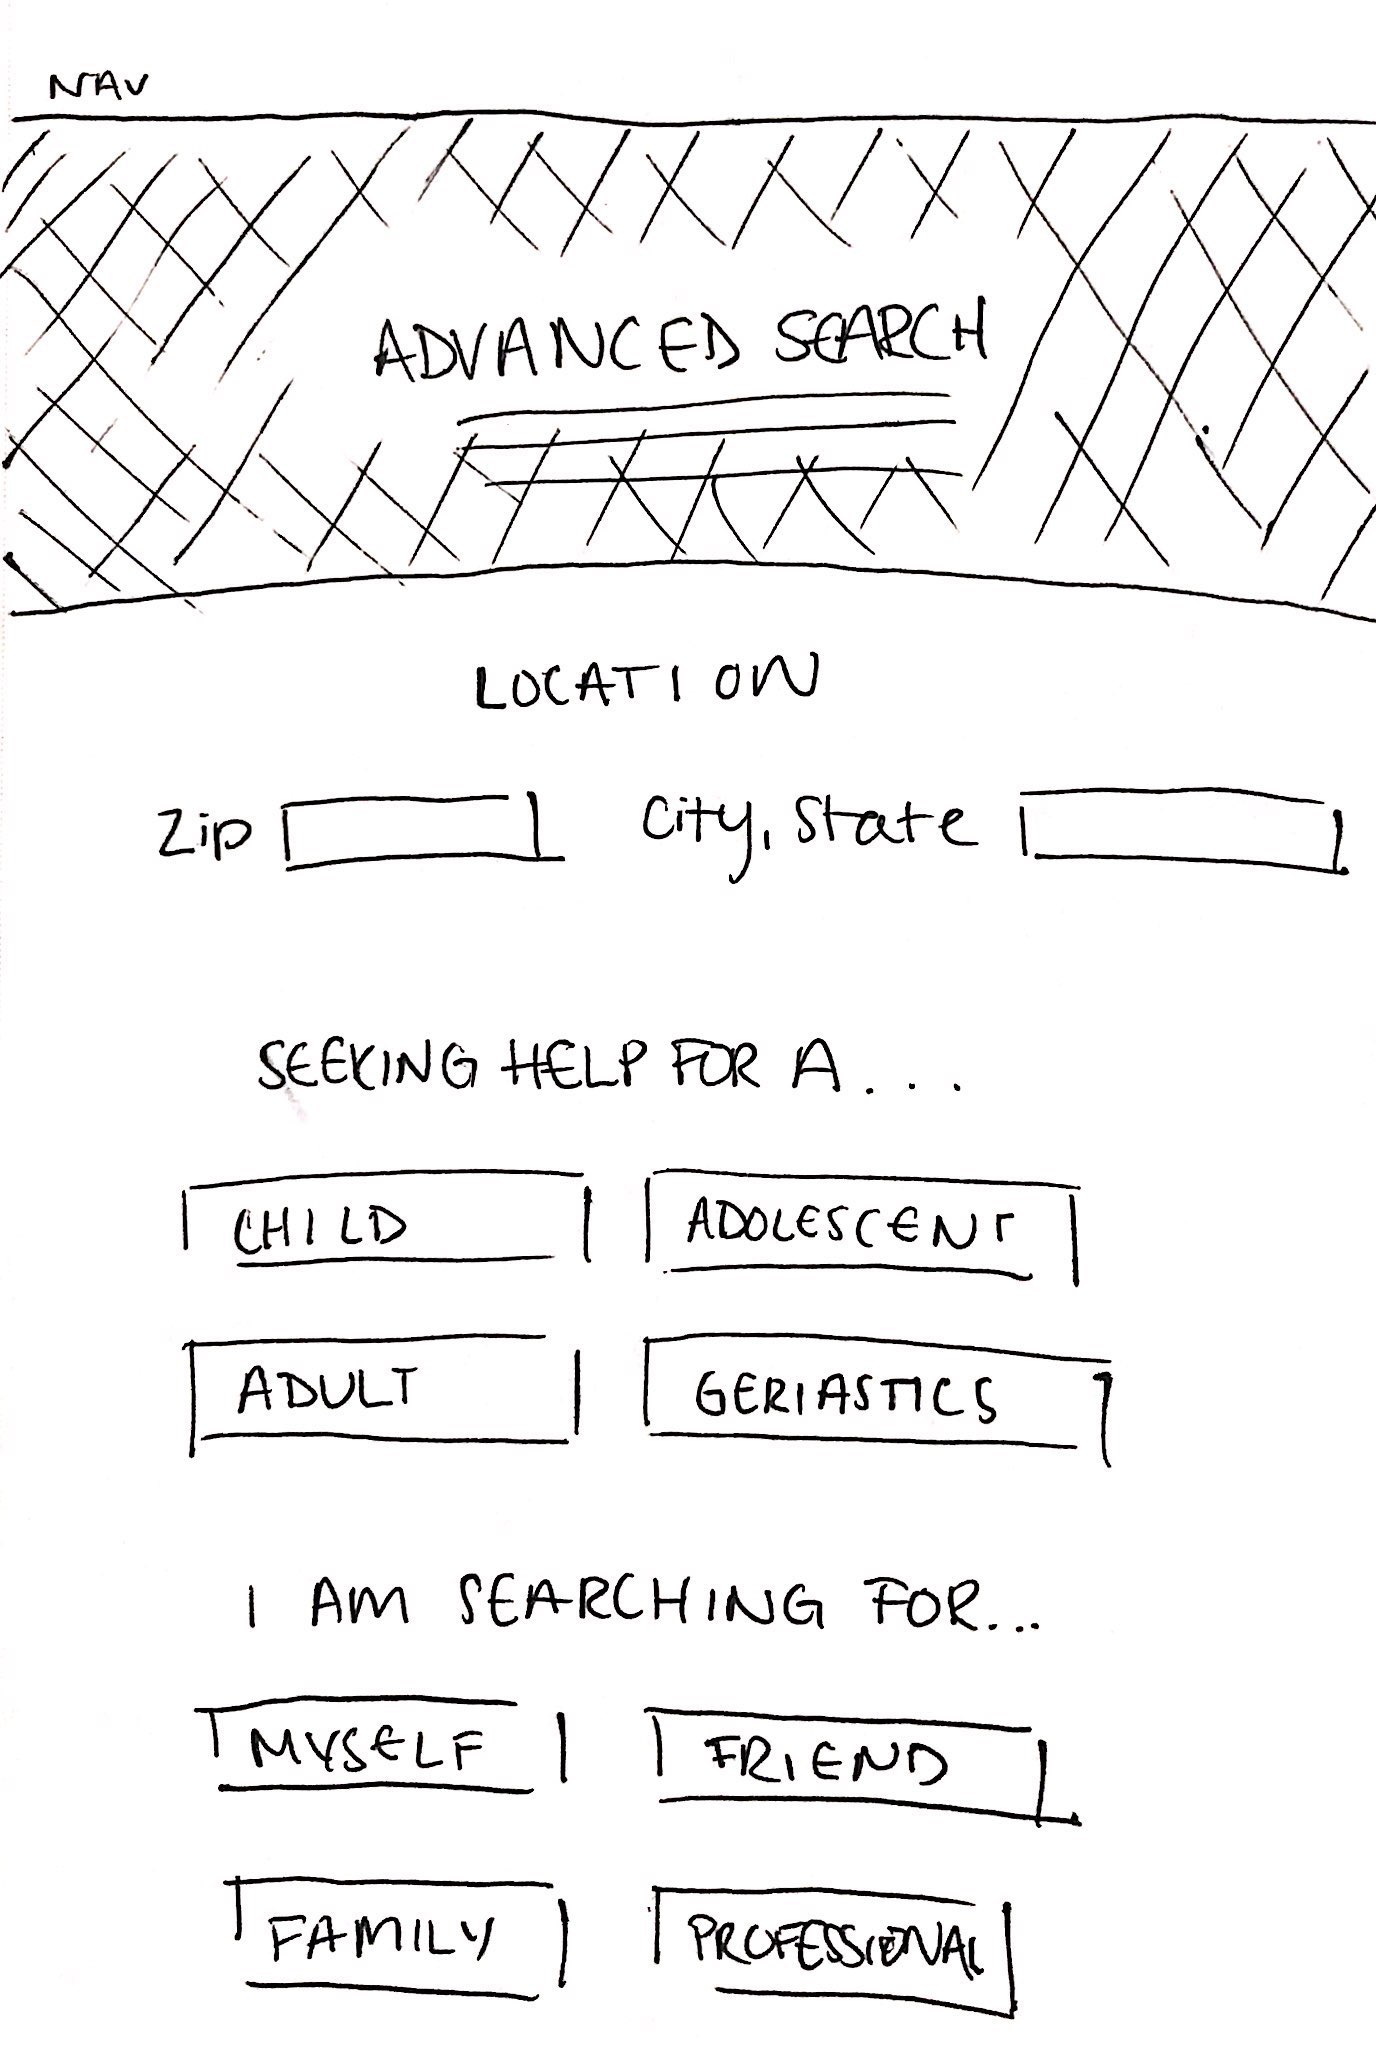 NAV
ADVANCED SEARCH
LOCATION
Zip City, State
SEEKING HELP FOR A...
CHILD ADOLESCENT
ADULT GERIASTICS
I AM SEARCHING FOR...
MYSELF FRIEND
FAMILY PROFESSIONAL